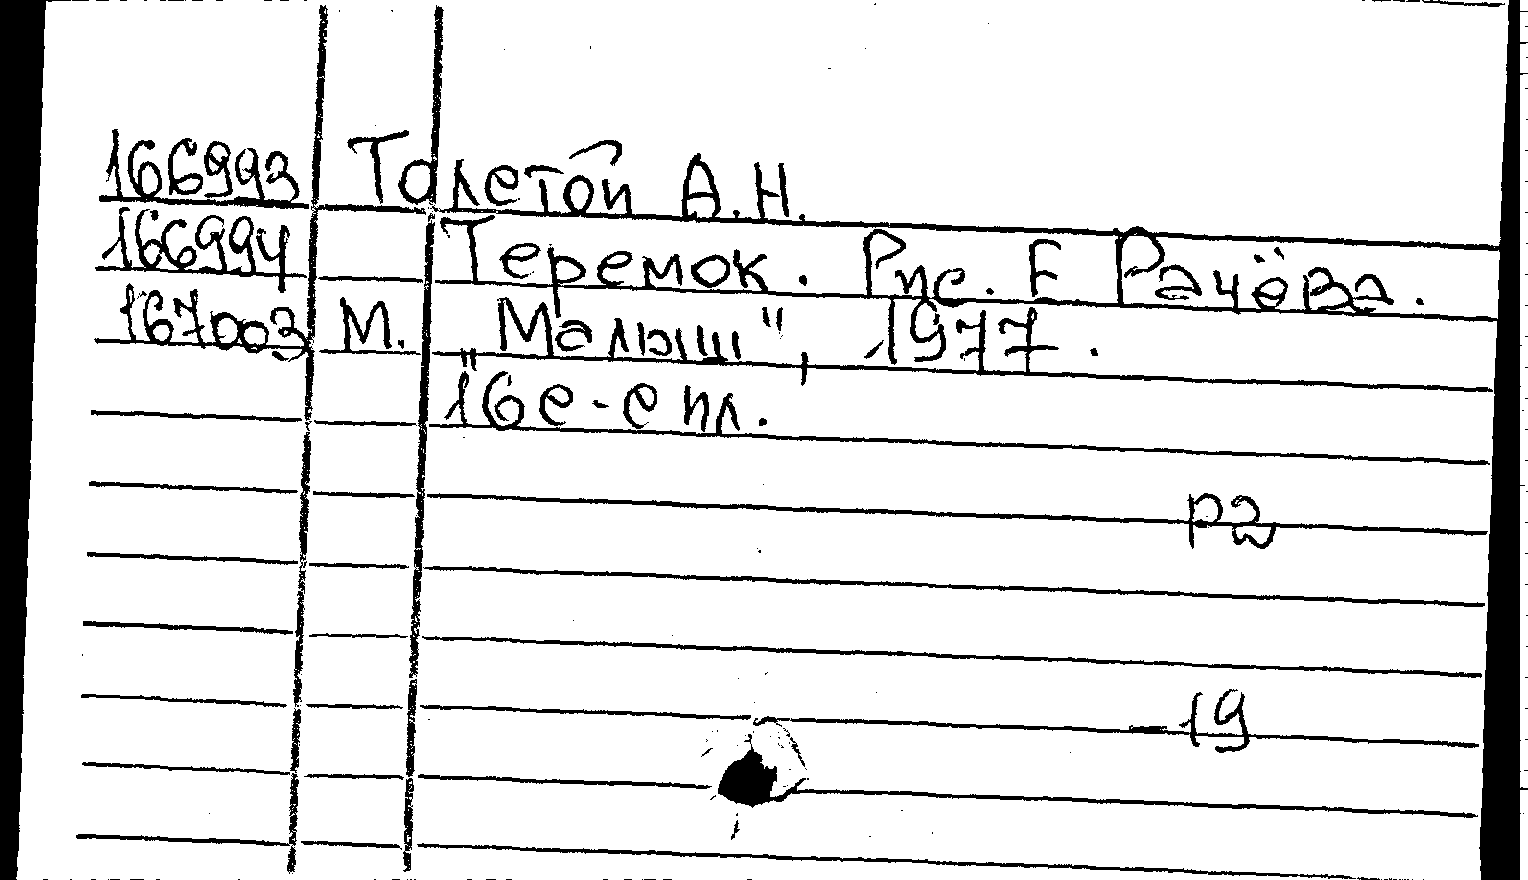 166993 Толстой А.Н.
166994 Теремок. Рис. Е Рачёва.
167003 М. "Малыш", 1977.
16 с - с ил.
р2
-19